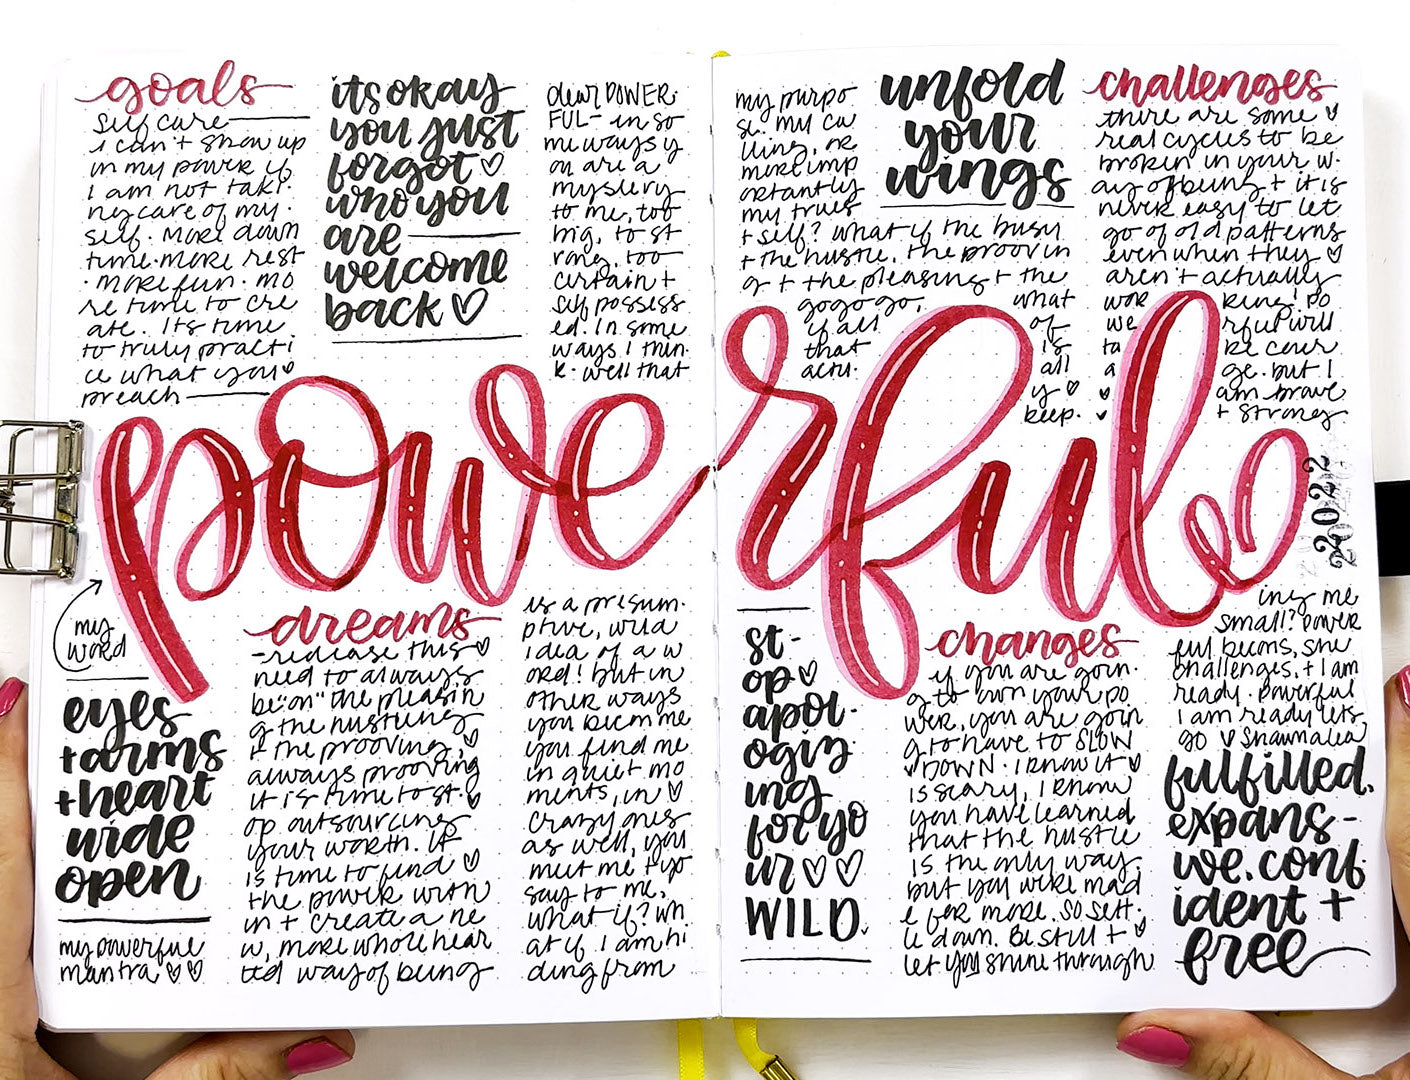 goals
self care
i can't show up
in my power if
I am not taki·
ng care of my·
self. more down
time. more rest
· more fun · mo
re time to cre
ate. Its time
to truly practi
ce what you
preach
its okay
you just
forgot
who you
are
welcome
back
dear POWER·
FUL - in so
me ways y
ou are a
mystery
to me, too
big, to st
rong, too
certain +
self possess
ed. In some
ways I thin·
k · well that
powerful
my
word
eyes
+ arms
+ heart
wide
open
my powerful
mantra
dreams
- release this
need to always
be "on" the pleasin
g the hustling
+ the prooving,
always prooving
it is time to st·
op outsourcing
your worth. It
is time to find
the power with
in + create a ne
w, more whole hear
ted way of being
is a presum·
ptive, wild
idea of a w
ord! but in
other ways
you become
you find me
in quiet mo
ments, in
crazy ones
as well, you
meet me + yo
say to me,
what if? wh
at if I am hi
ding from
my purpo
se. my ca
lling, or
more imp
ortantly
my trues
t self? what if the busy
+ the hustle, the proovin
g + the pleasing + the
go go go,
if all
that
actu·
what
of
is
all
y
keep·
unfold
your
wings
challenges
there are some
real cycles to be
broken in your w·
ay of being + it is
never easy to let
go of old patterns
even when they
aren't actually
work
king! po
we
rful will
ta
ke cour
a
ge. but I
am brave
+ strong
2022
st-
op
apol-
ogiz
ing
for yo
ur
WILD.
changes
if you are goin·
g to own your po
wer, you are goin
g to have to SLOW
DOWN · I know it
is scary, I know
you have learned
that the hustle
is the only way,
but you were mad
e for more. so sett·
le down. Be still +
let you shine through
ing me
small? power
ful becons, she
challenges, + I am
ready. powerful
I am ready lets
go shawnalea
fulfilled.
expans-
ive. conf
ident +
free